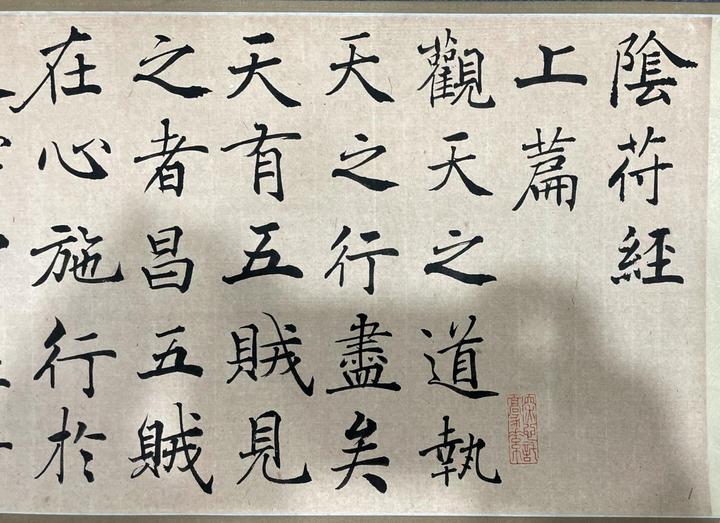 陰符經
上篇
觀天之道執
天之行盡矣
天有五賊見
之者昌五賊
在心施行於